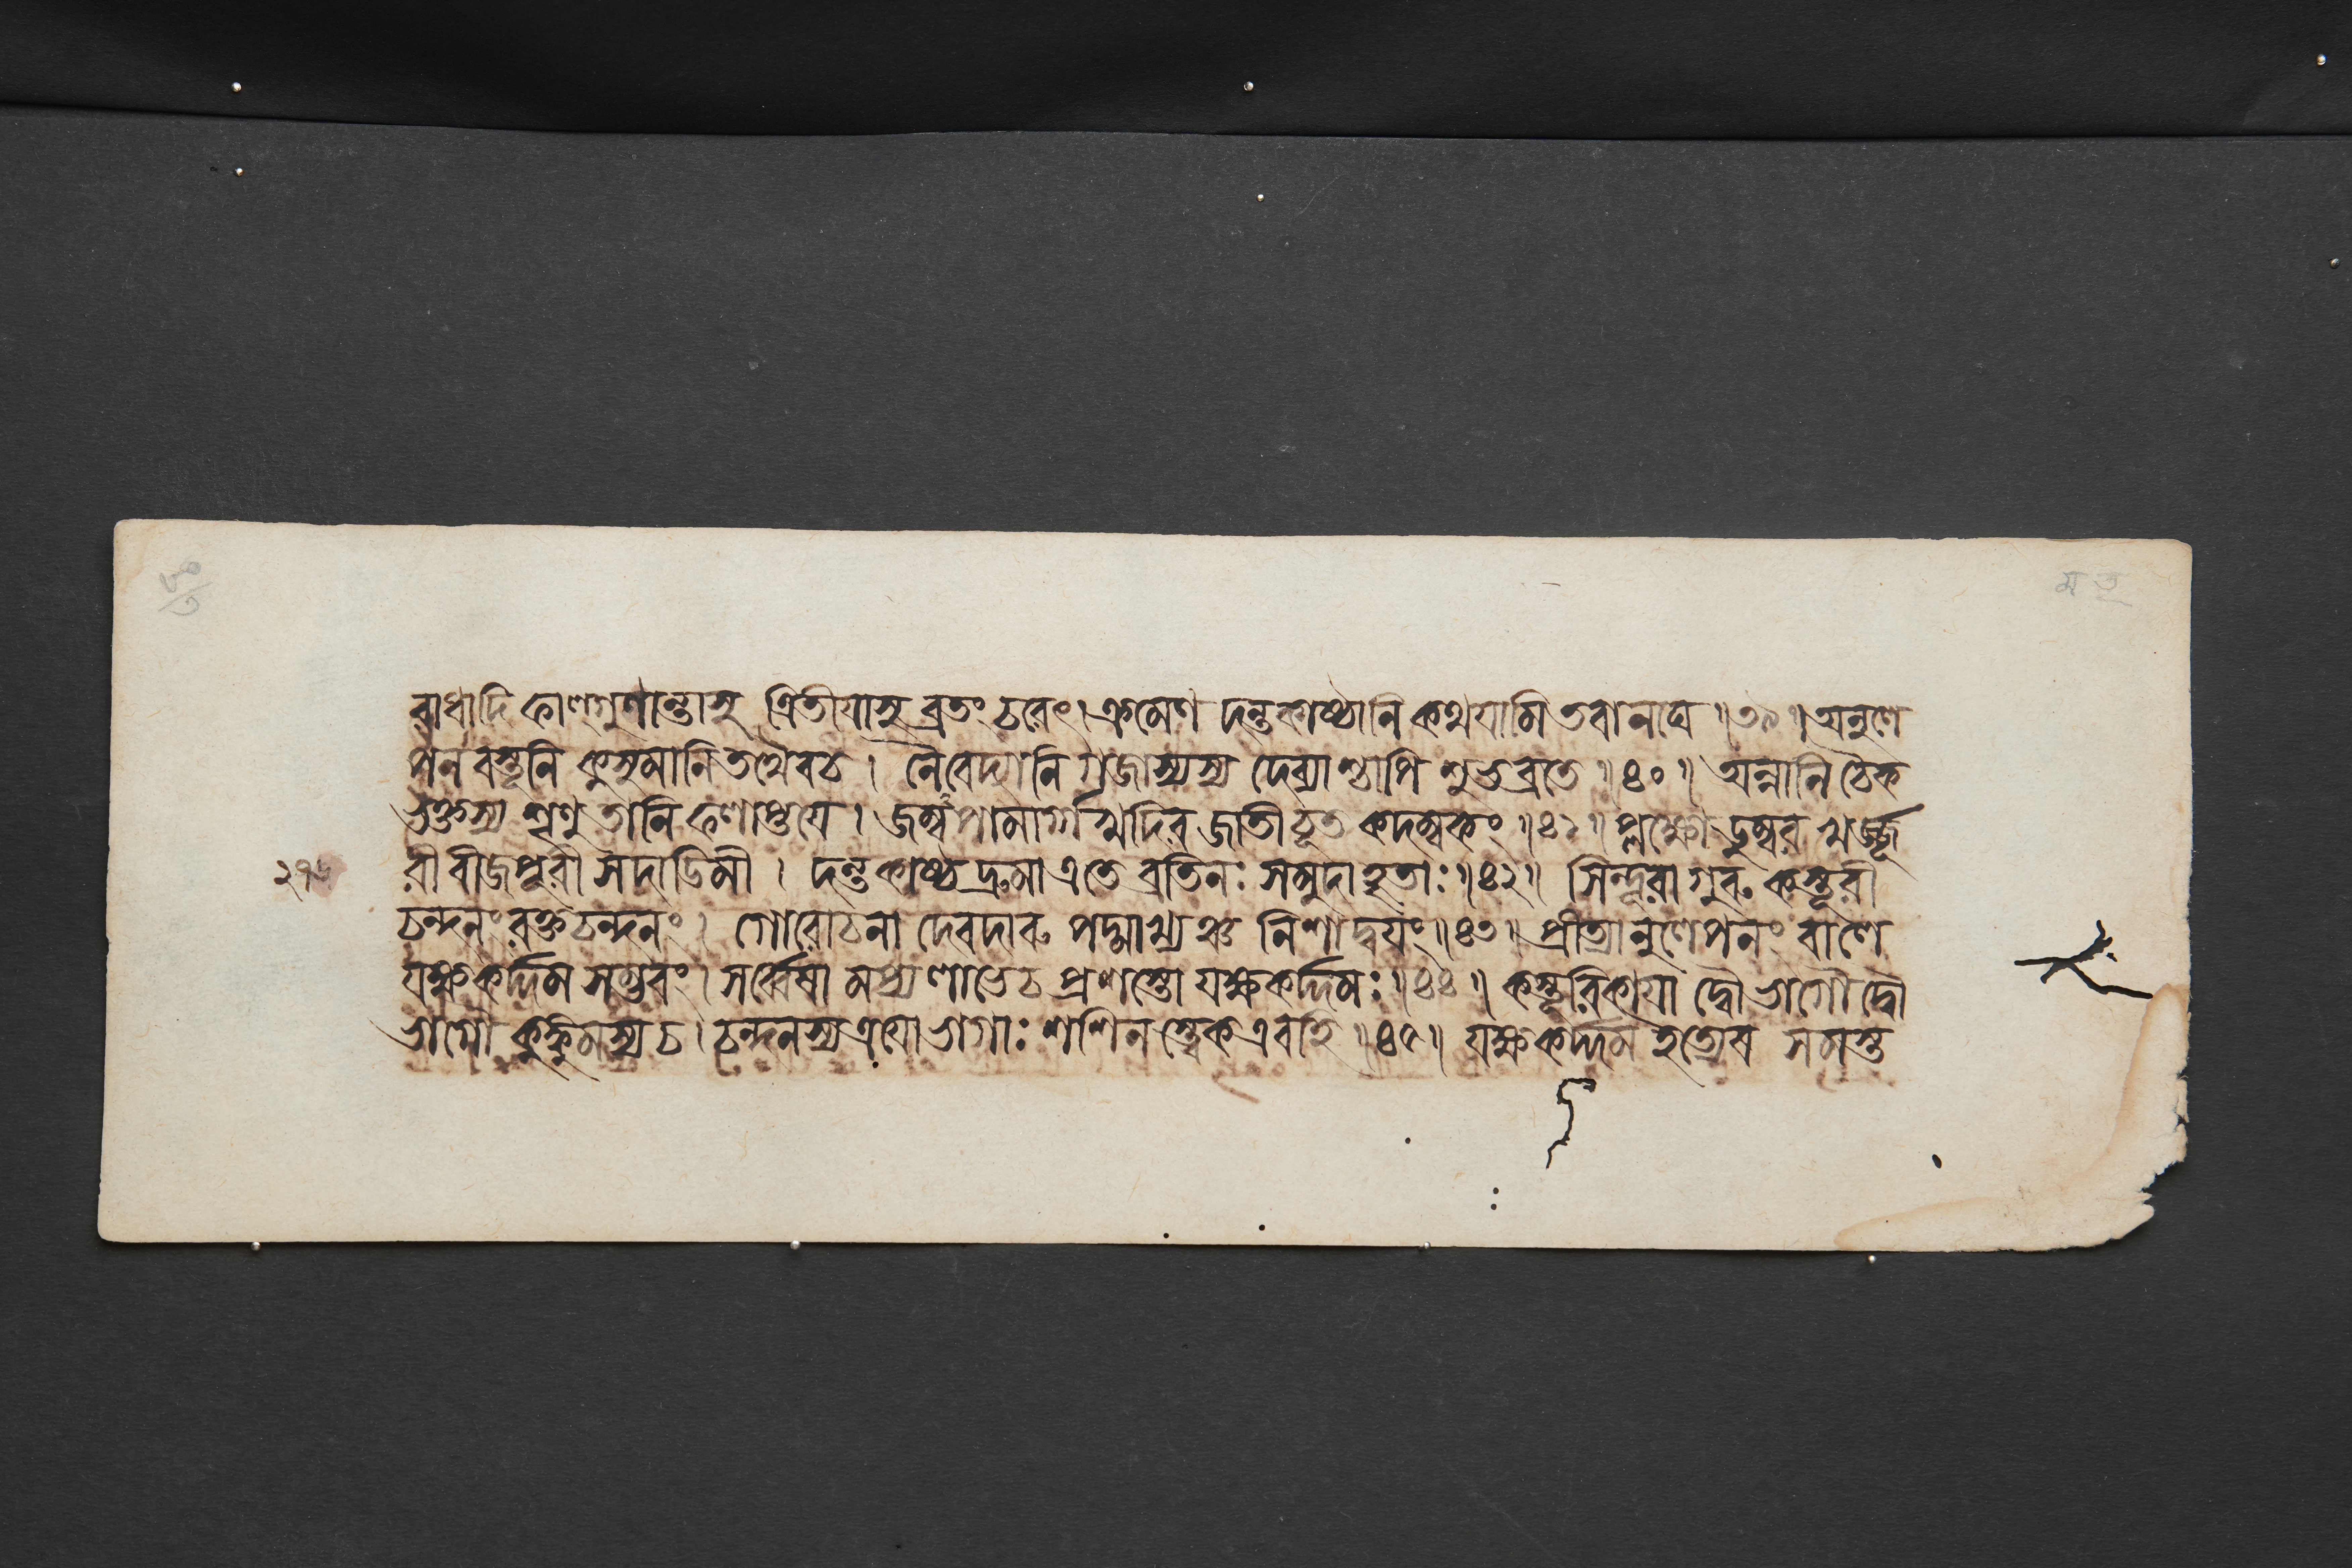 রাধাদি ফাল্গুণান্তাসু ত্রিতীয়াসু ব্রতং চরেৎ। ক্রমেণ দন্তকাষ্ঠানি কথয়ামি তবানঘ ॥৩৯॥ অনুলে
পন বস্তূনি কুসুমানি তথৈবচ। নৈবেদ্যানি গজাস্যস্য দেব্যাশ্চাপি শুভব্রতে ॥৪০॥ অন্নানি চৈক
ভুক্তস্য শৃণু তানি ফলাপ্তয়ে। জম্ব্বপামার্গখদির জাতীচূত কদম্বকং ॥৪১॥ প্লক্ষোডুম্বর খর্জ্জূ
২৭৬ রী বীজপূরী সদাডিমী। দন্তকাষ্ঠদ্রুমা এতে ব্রতিনঃ সমুদাহৃতাঃ ॥৪২॥ সিন্দূরাগুরু কস্তূরী
চন্দনং রক্তচন্দনং। গোরোচনা দেবদারু পদ্মাখ্যঞ্চ নিশাদ্বয়ং ॥৪৩॥ প্রীত্যানুলেপনং বালে
যক্ষকর্দ্দম সম্ভবং। সর্ব্বেষামপ্যলাভেচ প্রশস্তো যক্ষকর্দ্দমঃ ॥৪৪॥ কস্তূরিকায়া দ্বৌ ভাগৌ দ্বৌ
ভাগৌ কুঙ্কুমস্য চ। চন্দনস্য ত্রয়ো ভাগাঃ শশিনস্ত্বেক এবহি ॥৪৫॥ যক্ষকর্দ্দম ইত্যেব সমস্ত